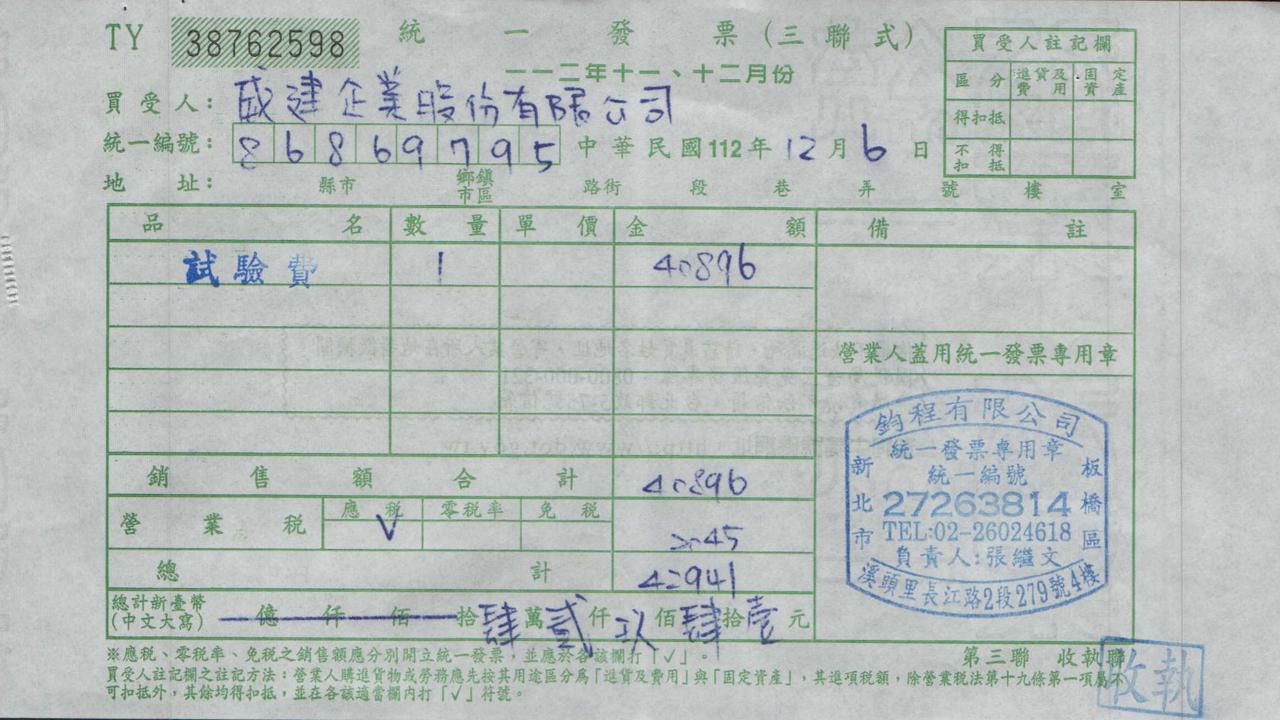 TY 38762598 統一發票(三聯式)
一一二年十一、十二月份
買受人註記欄
區分 進貨及費用 固定資產
得扣抵
不得扣抵
買受人: 盛建企業股份有限公司
統一編號: 86869795 中華民國112年12月6日
地址: 縣市 鄉鎮市區 路街 段 巷 弄 號 樓 室
品名 數量 單價 金額 備註
試驗費 1 40896
營業人蓋用統一發票專用章
銷售額合計 40896
營業稅 應稅 V 零稅率 免稅 2045
總計 42941
總計新臺幣(中文大寫) 億 仟 佰 拾肆萬貳仟玖佰肆拾壹元
鈞程有限公司
統一發票專用章
統一編號
27263814
TEL:02-26024618
負責人:張繼文
新北市板橋區
溪頭里長江路2段279號4樓
※應稅、零稅率、免稅之銷售額應分別開立統一發票,並應於各該欄打「✓」。
第三聯 收執聯
買受人註記欄之註記方法:營業人購進貨物或勞務應先按其用途區分為「進貨及費用」與「固定資產」,其進項稅額,除營業稅法第十九條第一項屬不
可扣抵外,其餘均得扣抵,並在各該適當欄內打「✓」符號。
收執